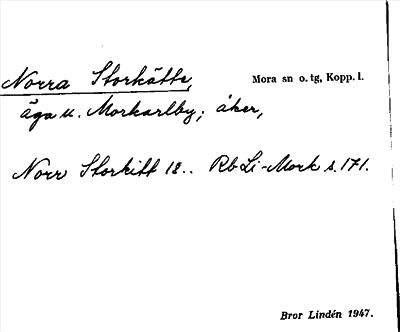 Norra Storkätte, Mora sn o. tg, Kopp. l.
äga u. Morkarlby; åker,
Norr Storkitt 18.. Rb Li-Mork s. 171.
Bror Lindén 1947.